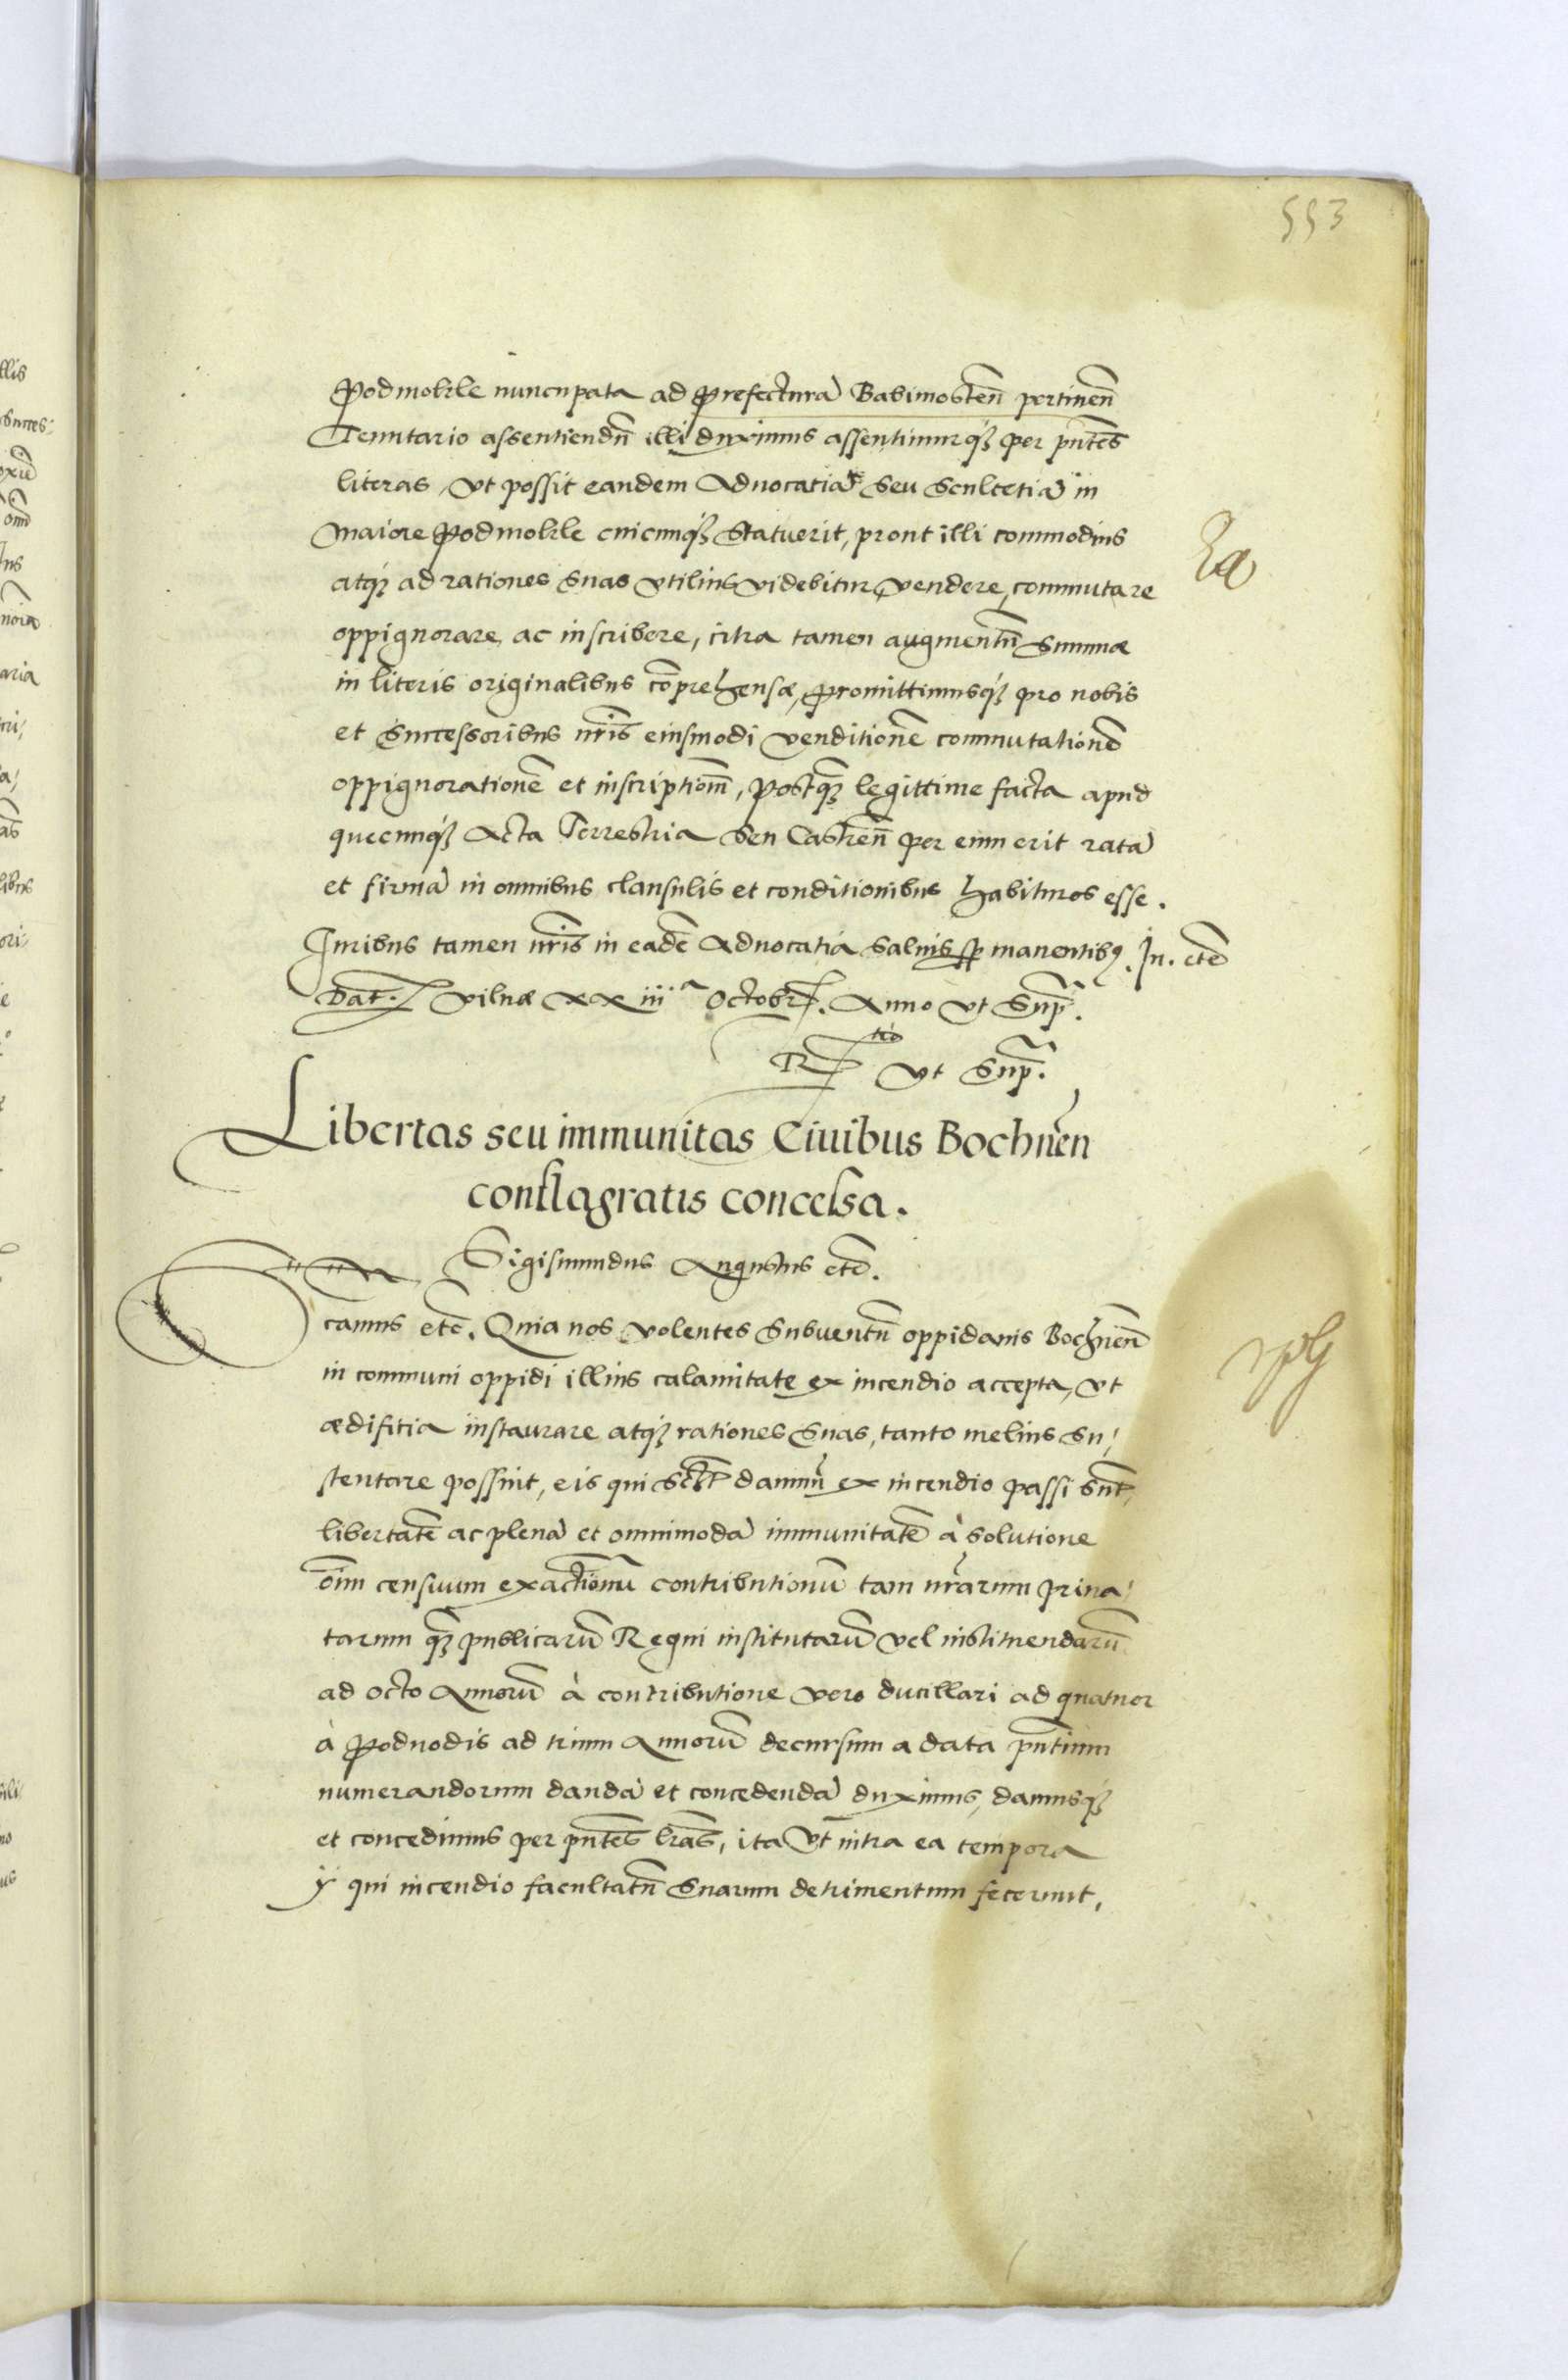 553
Podmokle nuncupata ad prefecturā Babimostēn pertinēn
Tenutario assentiendū illi duximus assentimurq́ꝫ per pn̄tes
literas, vt possit eandem Aduocatiā seu Scultetiā in
maiore Podmokle cuicunq́ꝫ statuerit, prout illi commodius
atq́ꝫ ad rationes suas vtilius videbitur, vendere, commutare
oppignorare ac inscribere, citra tamen augmentū summæ
in literis originalibus cōprehensæ, Promittimusq́ꝫ pro nobis
et Successoribus nr̄is eiusmodi venditionē commutationē
oppignorationē et inscriptionē, postq̄ꝫ legittime facta apud
quecunq́ꝫ Acta Terrestria seu Castrēn per eum erit ratā
et firmā in omnibus clausulis et conditionibus habituros esse.
Iuribus tamen nr̄is in eadē Aduocatia saluis sp̄ manentibꝯ. In. etc̄
Dat. Vilnæ xxiiiª Octobr. Anno vt Sup̄.
R̄tio vt Sup̄.
Libertas seu immunitas Ciuibus Bochnēn
conflagratis concessa.
Sigismundus Augustus etc̄.
camus etc̄. Quia nos volentes subuentū oppidanis Bochnēn
in communi oppidi illius calamitate ex incendio accepta, vt
ædifitia instaurare atq́ꝫ rationes suas, tanto melius su/
stentare possint, eis qui damnū ex incendio passi sūt,
libertatē ac plenā et omnimodā immunitatē à solutione
oīm censuum exactionū contributionū tam nr̄arum priua/
tarum q̄ꝫ publicarū Regni institutarū vel instituendarū
ad octo Annorū à contributione vero ducillari ad quatuor
à Poduodis ad trium Annorū decursum a data pn̄tium
numerandorum dandā et concedendā duximus, damusq́ꝫ
et concedimus per pn̄tes lr̄as, ita vt intra ea tempora
ÿ qui incendio facultatū suarum detrimentum fecerunt,